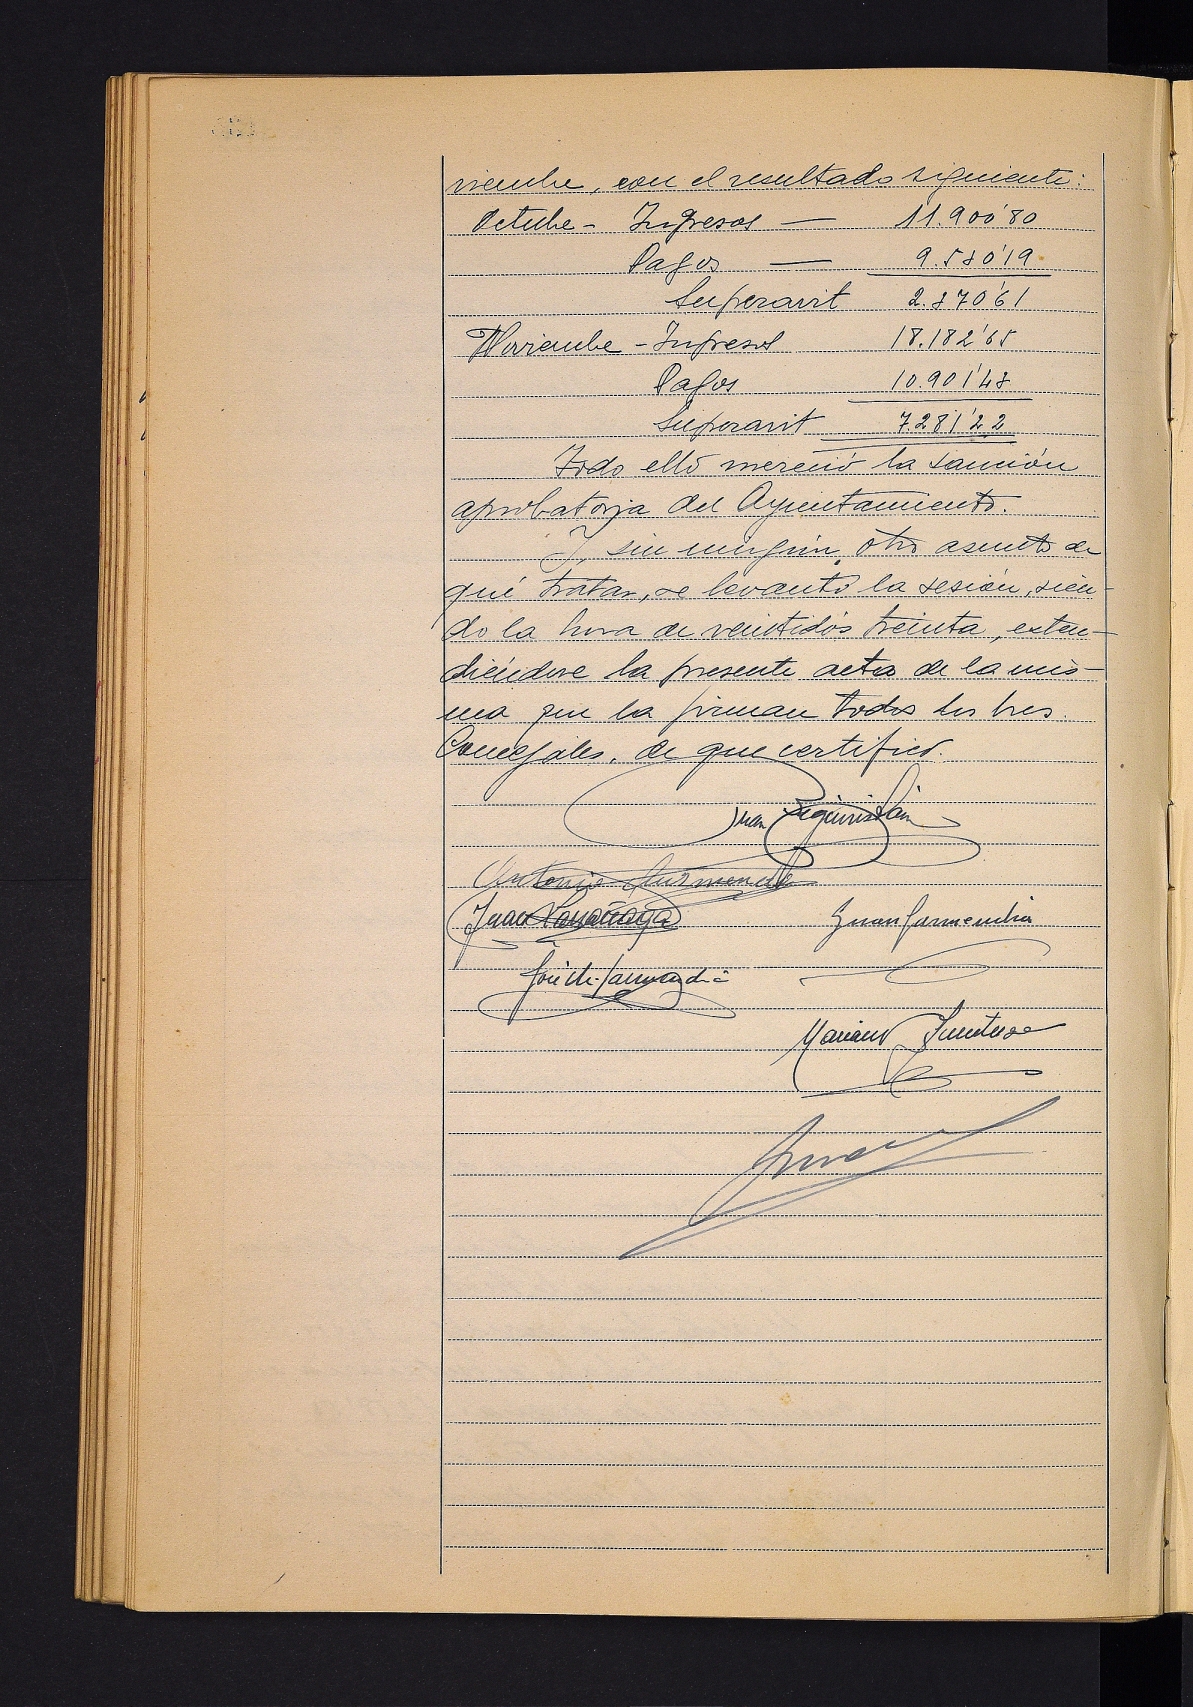 viembre, con el resultado siguiente:
Octubre - Ingresos — 11.900'80
Pagos — 9.530'19
Superavit 2.370'61
Noviembre - Ingresos 18.182'65
Pagos 10.901'43
Superavit 7.281'22
Todo ello mereció la sanción
aprobatoria del Ayuntamiento.
Y, sin ningún otro asunto de
qué tratar, se levantó la sesión, sien-
do la hora de veintidós treinta, exten-
diéndose la presente acta de la mis-
ma que la firman todos los tres.
Concejales, de que certifico.
Juan Eguiristain
Antonio Gurmendi
Juan Larrañaga Juan Garmendia
José M. Garmendia
Mariano